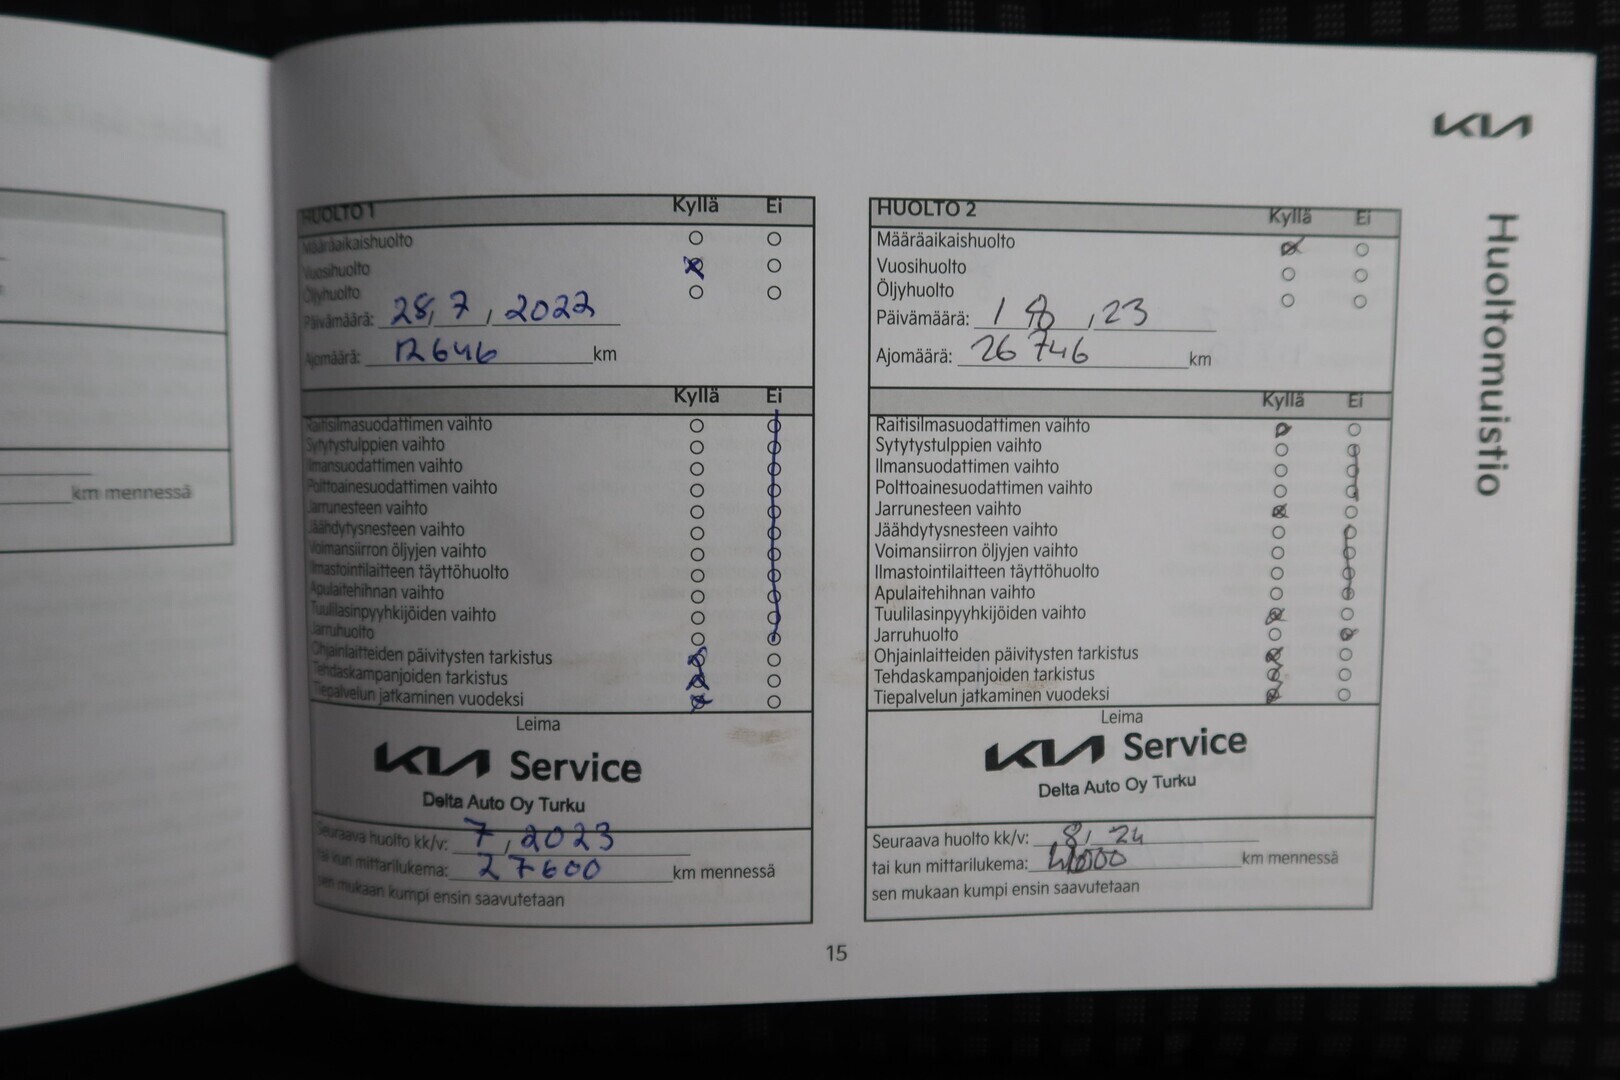 km mennessä
KIA
Huoltomuistio
HUOLTO 1 Kyllä Ei
Määräaikaishuolto
Vuosihuolto
Öljyhuolto
Päivämäärä: 28, 7, 2022
Ajomäärä: 12646 km
Kyllä Ei
Raitisilmasuodattimen vaihto
Sytytystulppien vaihto
Ilmansuodattimen vaihto
Polttoainesuodattimen vaihto
Jarrunesteen vaihto
Jäähdytysnesteen vaihto
Voimansiirron öljyjen vaihto
Ilmastointilaitteen täyttöhuolto
Apulaitehihnan vaihto
Tuulilasinpyyhkijöiden vaihto
Jarruhuolto
Ohjainlaitteiden päivitysten tarkistus
Tehdaskampanjoiden tarkistus
Tiepalvelun jatkaminen vuodeksi
Leima
KIA Service
Delta Auto Oy Turku
Seuraava huolto kk/v: 7, 2023
tai kun mittarilukema: 27600 km mennessä
sen mukaan kumpi ensin saavutetaan
HUOLTO 2 Kyllä Ei
Määräaikaishuolto
Vuosihuolto
Öljyhuolto
Päivämäärä: 1 8, 23
Ajomäärä: 26 746 km
Kyllä Ei
Raitisilmasuodattimen vaihto
Sytytystulppien vaihto
Ilmansuodattimen vaihto
Polttoainesuodattimen vaihto
Jarrunesteen vaihto
Jäähdytysnesteen vaihto
Voimansiirron öljyjen vaihto
Ilmastointilaitteen täyttöhuolto
Apulaitehihnan vaihto
Tuulilasinpyyhkijöiden vaihto
Jarruhuolto
Ohjainlaitteiden päivitysten tarkistus
Tehdaskampanjoiden tarkistus
Tiepalvelun jatkaminen vuodeksi
Leima
KIA Service
Delta Auto Oy Turku
Seuraava huolto kk/v: 8, 24
tai kun mittarilukema: km mennessä
sen mukaan kumpi ensin saavutetaan
15